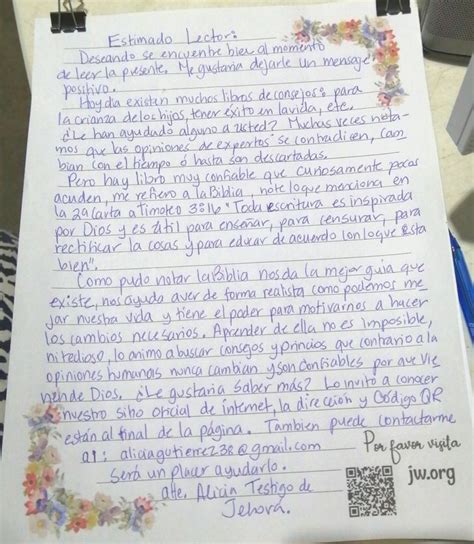 Estimado Lector:
Deseando se encuentre bien al momento
de leer la presente. Me gustaria dejarle un mensaje
positivo.
Hoy dia existen muchos libros de consejos: para
la crianza de los hijos, tener éxito en la vida, etc.
¿Le han ayudado alguno a usted? Muchas veces nota-
mos que las opiniones de expertos se contradicen, cam
bian con el tiempo ó hasta son descartadas.
Pero hay libro muy confiable que curiosamente pocos
acuden, me refiero a la Biblia, note loque menciona en
la 2ª carta a Timoteo 3:16 "Toda escritura es inspirada
por Dios y es útil para enseñar, para censurar, para
rectificar la cosas y para educar de acuerdo con loque esta
bien".
Como pudo notar la Biblia nos da la mejor guia que
existe, nos ayuda a ver de forma realista como podemos me
jar nuestra vida y tiene el poder para motivarnos a hacer
los cambios necesarios. Aprender de ella no es imposible,
ni tedioso, lo animo a buscar consejos y princios que contario a la
opiniones humanas nunca cambian y son confiables por que vie
nen de Dios. ¿Le gustaria saber más? Lo invitó a conocer
nuestro sitio oficial de internet, la dirección y Código QR
están al final de la página. Tambien puede contactarme
al: aliciagutierrez238@gmail.com
Será un placer ayudarlo.
atte. Alicia Testigo de
Jehová.
Por favor visita
jw.org